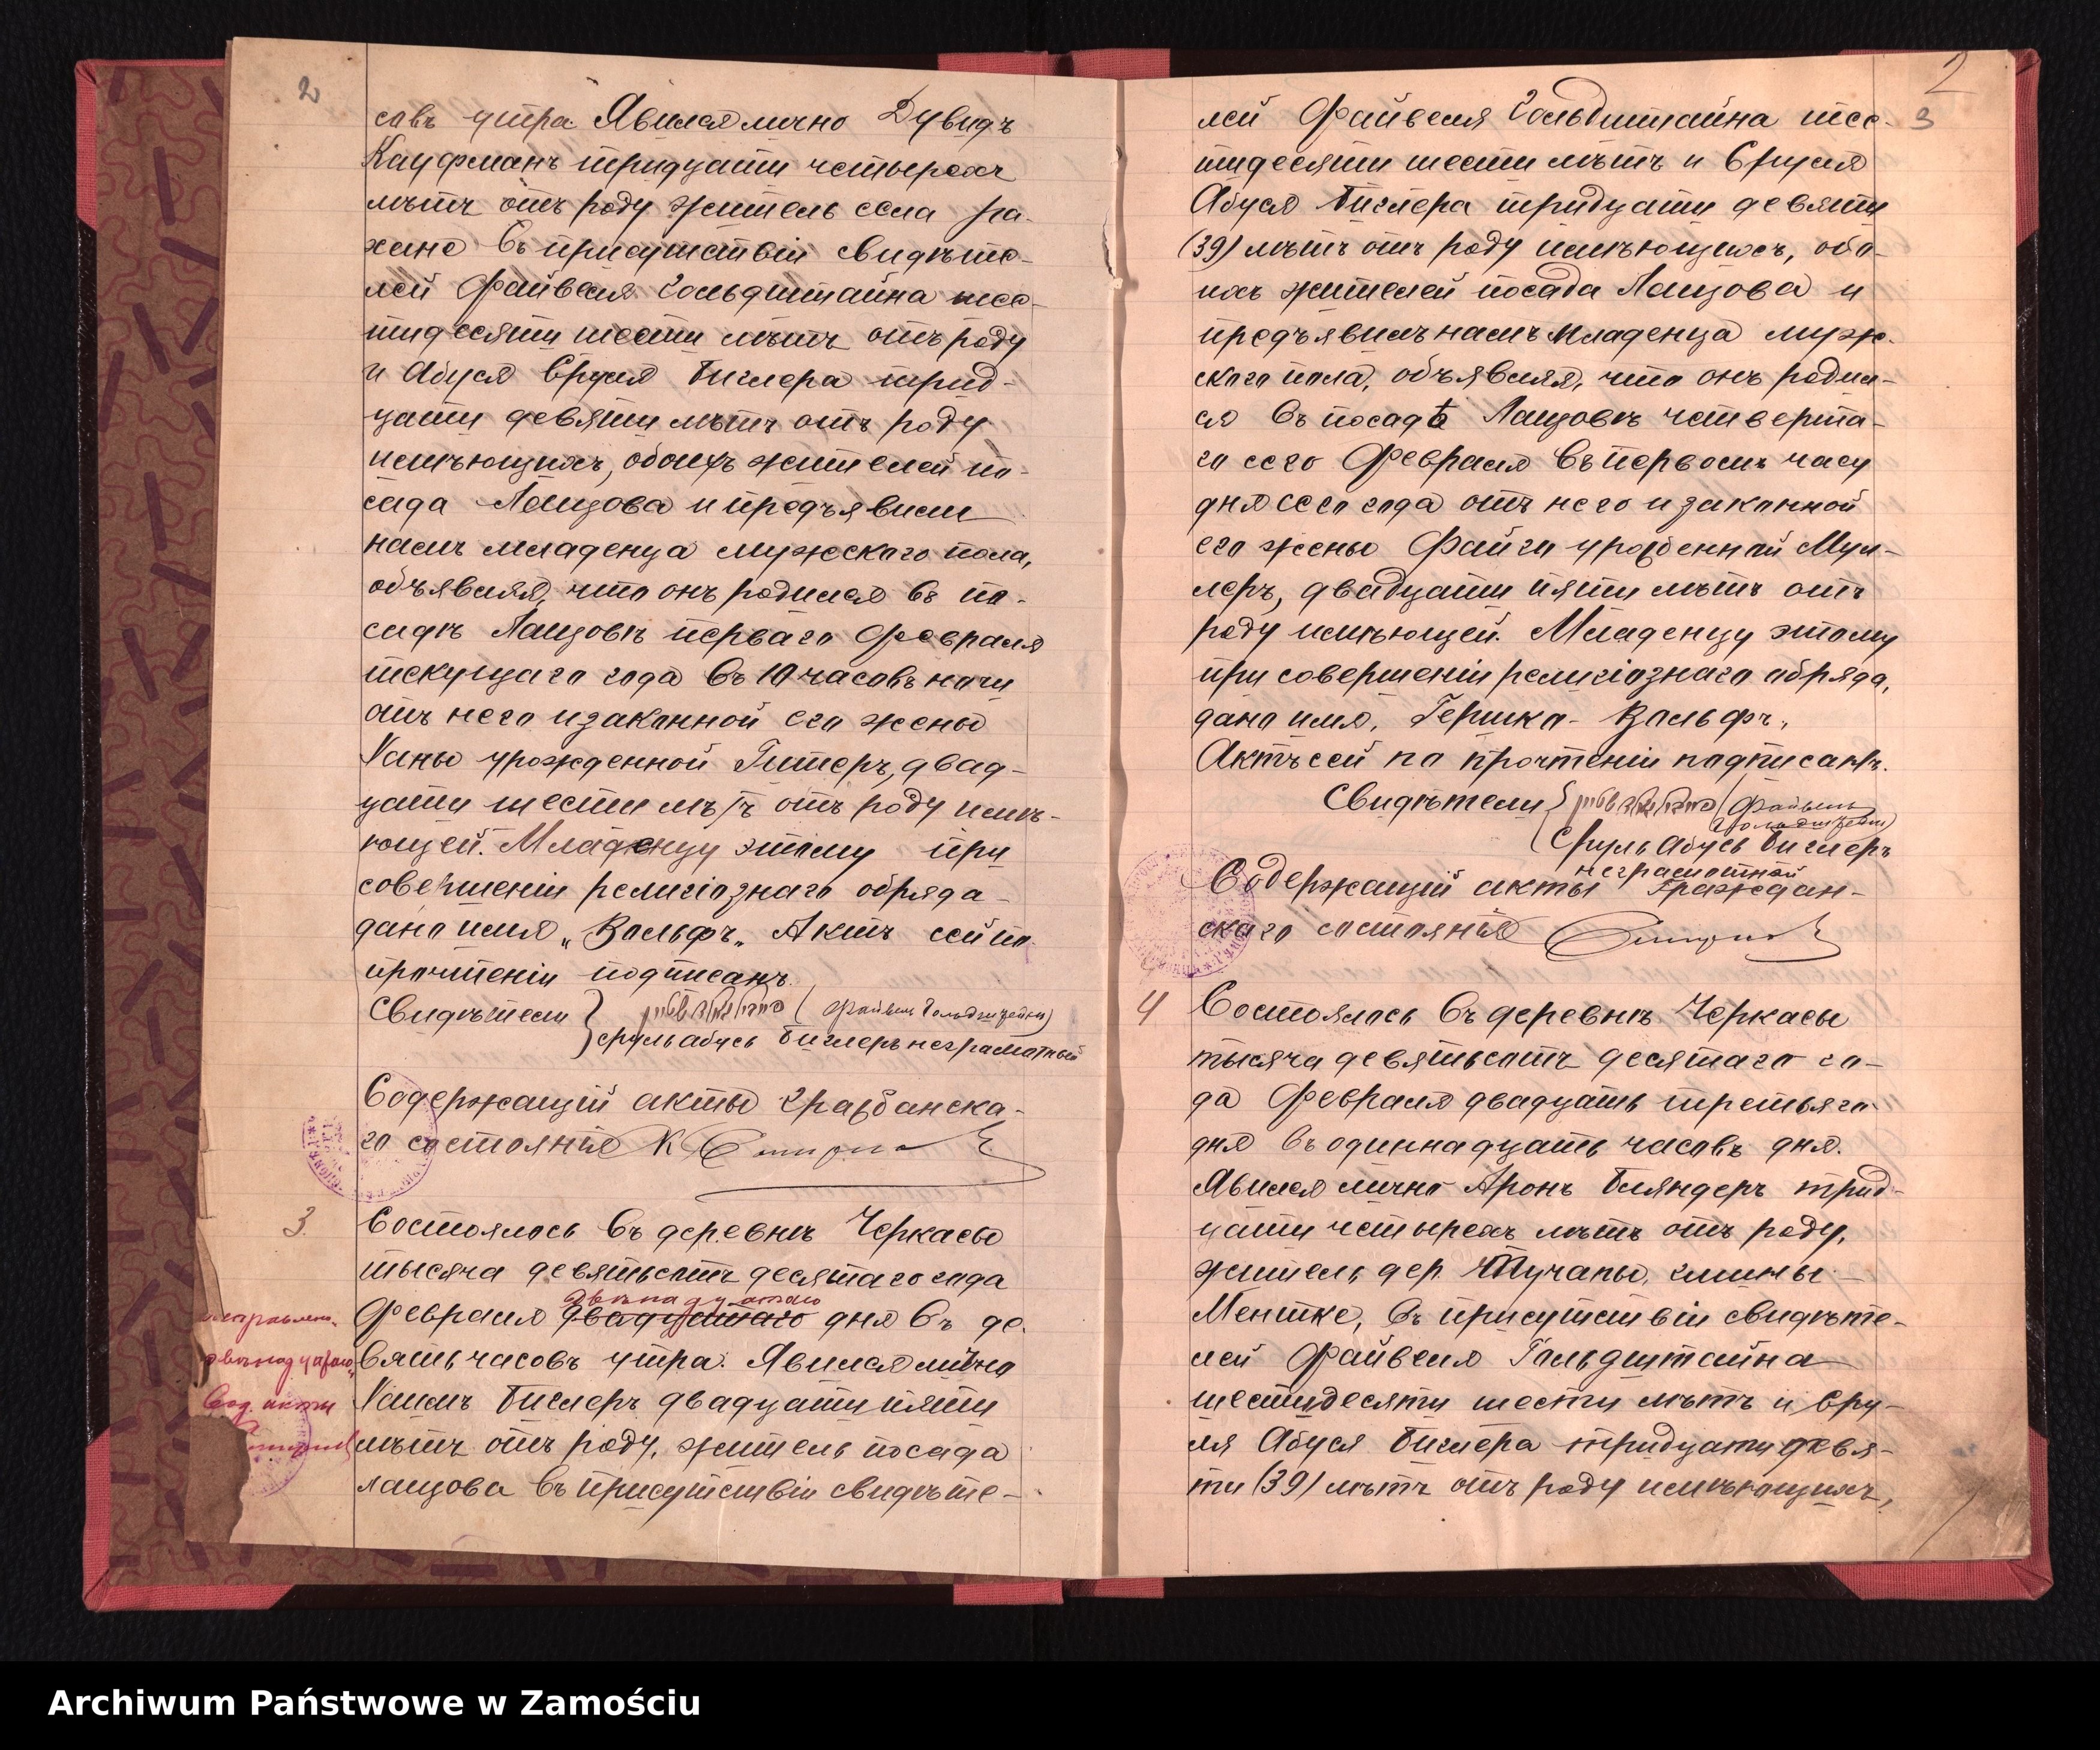 2
совъ утра Явился лично Дувидъ
Кауфманъ тридцати четырехъ
лѣтъ отъ роду житель села Ра-
хане въ присутствіи свидѣте-
лей Файвеля Гольдштайна шес-
тидесяти шести лѣтъ отъ роду
и Абуся Сруля Биглера трид-
цати девяти лѣтъ отъ роду
имѣющихъ, обоихъ жителей по-
сада Лащова и предъявили
намъ младенца мужского пола,
объявляя, что онъ родился въ по-
садѣ Лащовѣ перваго Февраля
текущаго года въ 10 часовъ ночи
отъ него и законной его жены
Ханы урожденной Гитеръ, двад-
цати шести лѣтъ отъ роду имѣ-
ющей. Младенцу этому при
совершеніи религіознаго обряда
дано имя „Вольфъ„ Актъ сей по
прочтеніи подписанъ.
Свидѣтели { (Файвель Гольдштейнъ)
Сруль Абусь Биглеръ неграмотный
Содержащій акты гражданска-
го состоянія
3. Состоялось въ деревнѣ Черкасы
тысяча девятьсотъ десятаго года
двѣнадцатаго
Февраля двадцатаго дня въ де-
вять часовъ утра. Явился лично
Хаимъ Биглеръ двадцати пяти
лѣтъ отъ роду, житель посада
Лащова въ присутствіи свидѣте-
двѣнадцатаго
Сод. акты
2
3
лей Файвеля Гольдштайна шес-
тидесяти шести лѣтъ и Сруля
Абуся Биглера тридцати девяти
(39) лѣтъ отъ роду имѣющихъ, обо-
ихъ жителей посада Лащова и
предъявилъ намъ младенца муж-
ского пола, объявляя, что онъ родил-
ся въ посадѣ Лащовѣ четверта-
го сего Февраля въ первомъ часу
дня сего года отъ него и законной
его жены Файги урожденной Мул-
леръ, двадцати пяти лѣтъ отъ
роду имѣющей. Младенцу этому
при совершеніи религіознаго обряда,
дано имя, Гершко-Вольфъ,
Актъ сей по прочтеніи подписанъ.
Свидѣтели { (Файвель
Гольдштейнъ)
Сруль Абусь Биглеръ
неграмотный
Содержащій акты Граждан-
скаго состоянія
4 Состоялось въ деревнѣ Черкасы
тысяча девятьсотъ десятаго го-
да Февраля двадцать третьяго
дня въ одиннадцать часовъ дня.
Явился лично Аронъ Бляндеръ трид-
цати четырехъ лѣтъ отъ роду,
житель дер. Тучапы, гмины
Менткe, въ присутствіи свидѣте-
лей Файвеля Гольдштайна
шестидесяти шести лѣтъ и Сру-
ля Абуся Биглера тридцати девя-
ти (39) лѣтъ отъ роду имѣющихъ,
Archiwum Państwowe w Zamościu